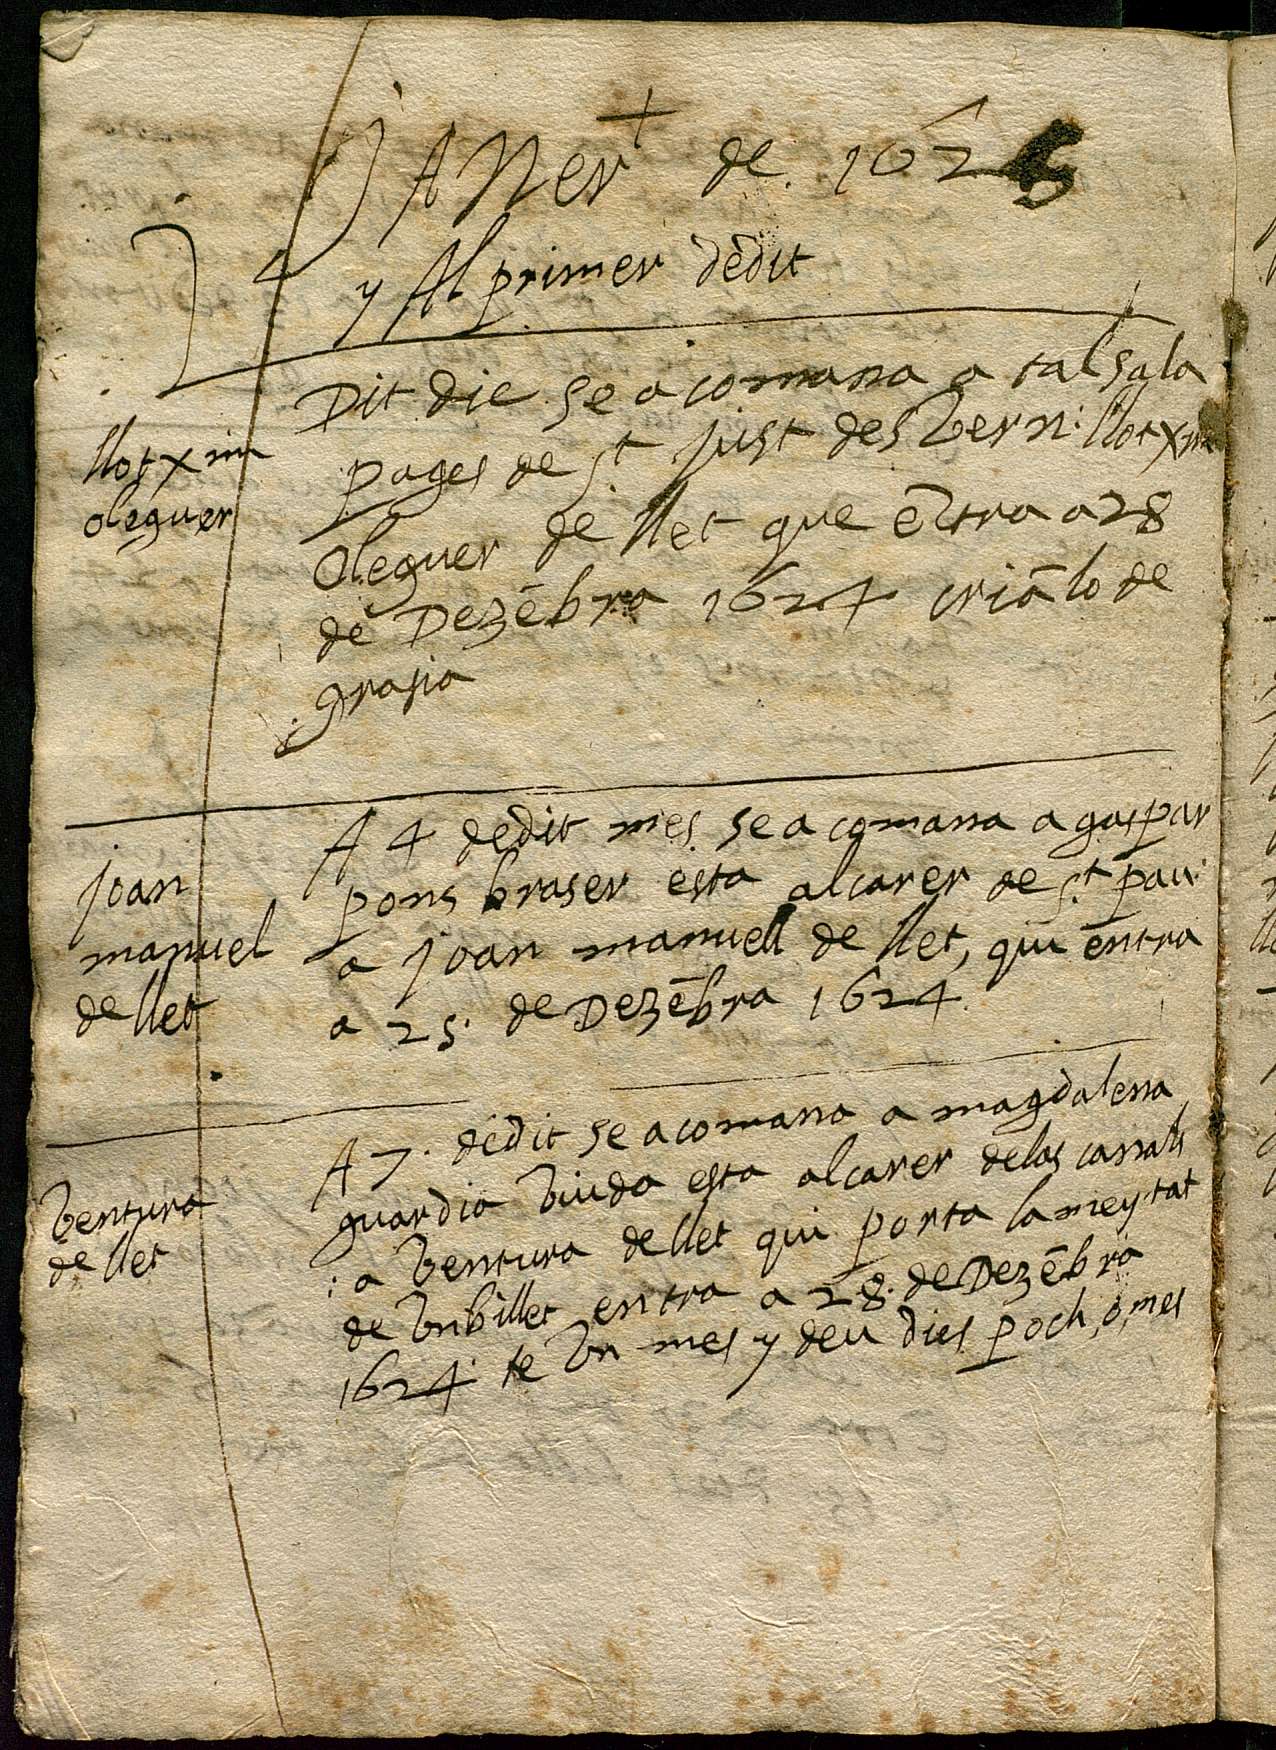 +
JANer de 1625
y Al primer dedit
llotxim
oleguer
Dit die se acomana a tal sala
pages de st just desvern: llotxim
Oleguer de llet que ētra a 28
de Dezēbra 1624 criālo de
grasia
joan
manuel
de llet
A 4 dedit mes se acomana a gaspar
pons braser esta alcarer de st pau:
a joan manuell de llet, qui entra
a 25. de Dezēbra 1624.
Ventura
de llet
A 7. dedit se acomana a magdalena
guardia viuda esta alcarer delas canals
: a Ventura de llet qui porta la meytat
de vnbillet entra a 28. de Dezēbra
1624. te vn mes y deu dies poch, o, mes